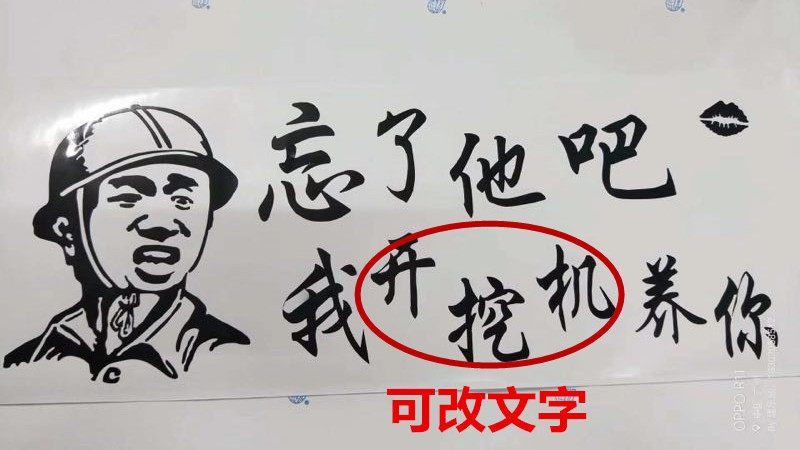 忘了他吧
我开挖机养你
可改文字
OPPO R11